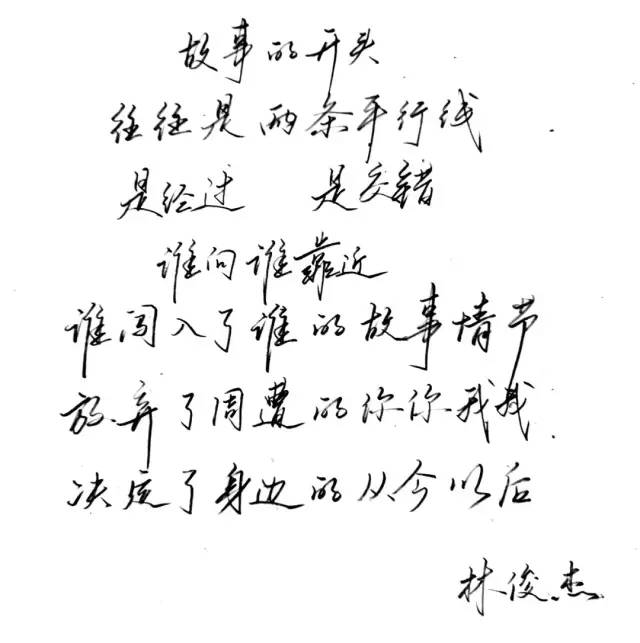 故事的开头
往往是两条平行线
是经过 是交错
谁向谁靠近
谁闯入了谁的故事情节
放弃了周遭的你你我我
决定了身边的从今以后
林俊杰